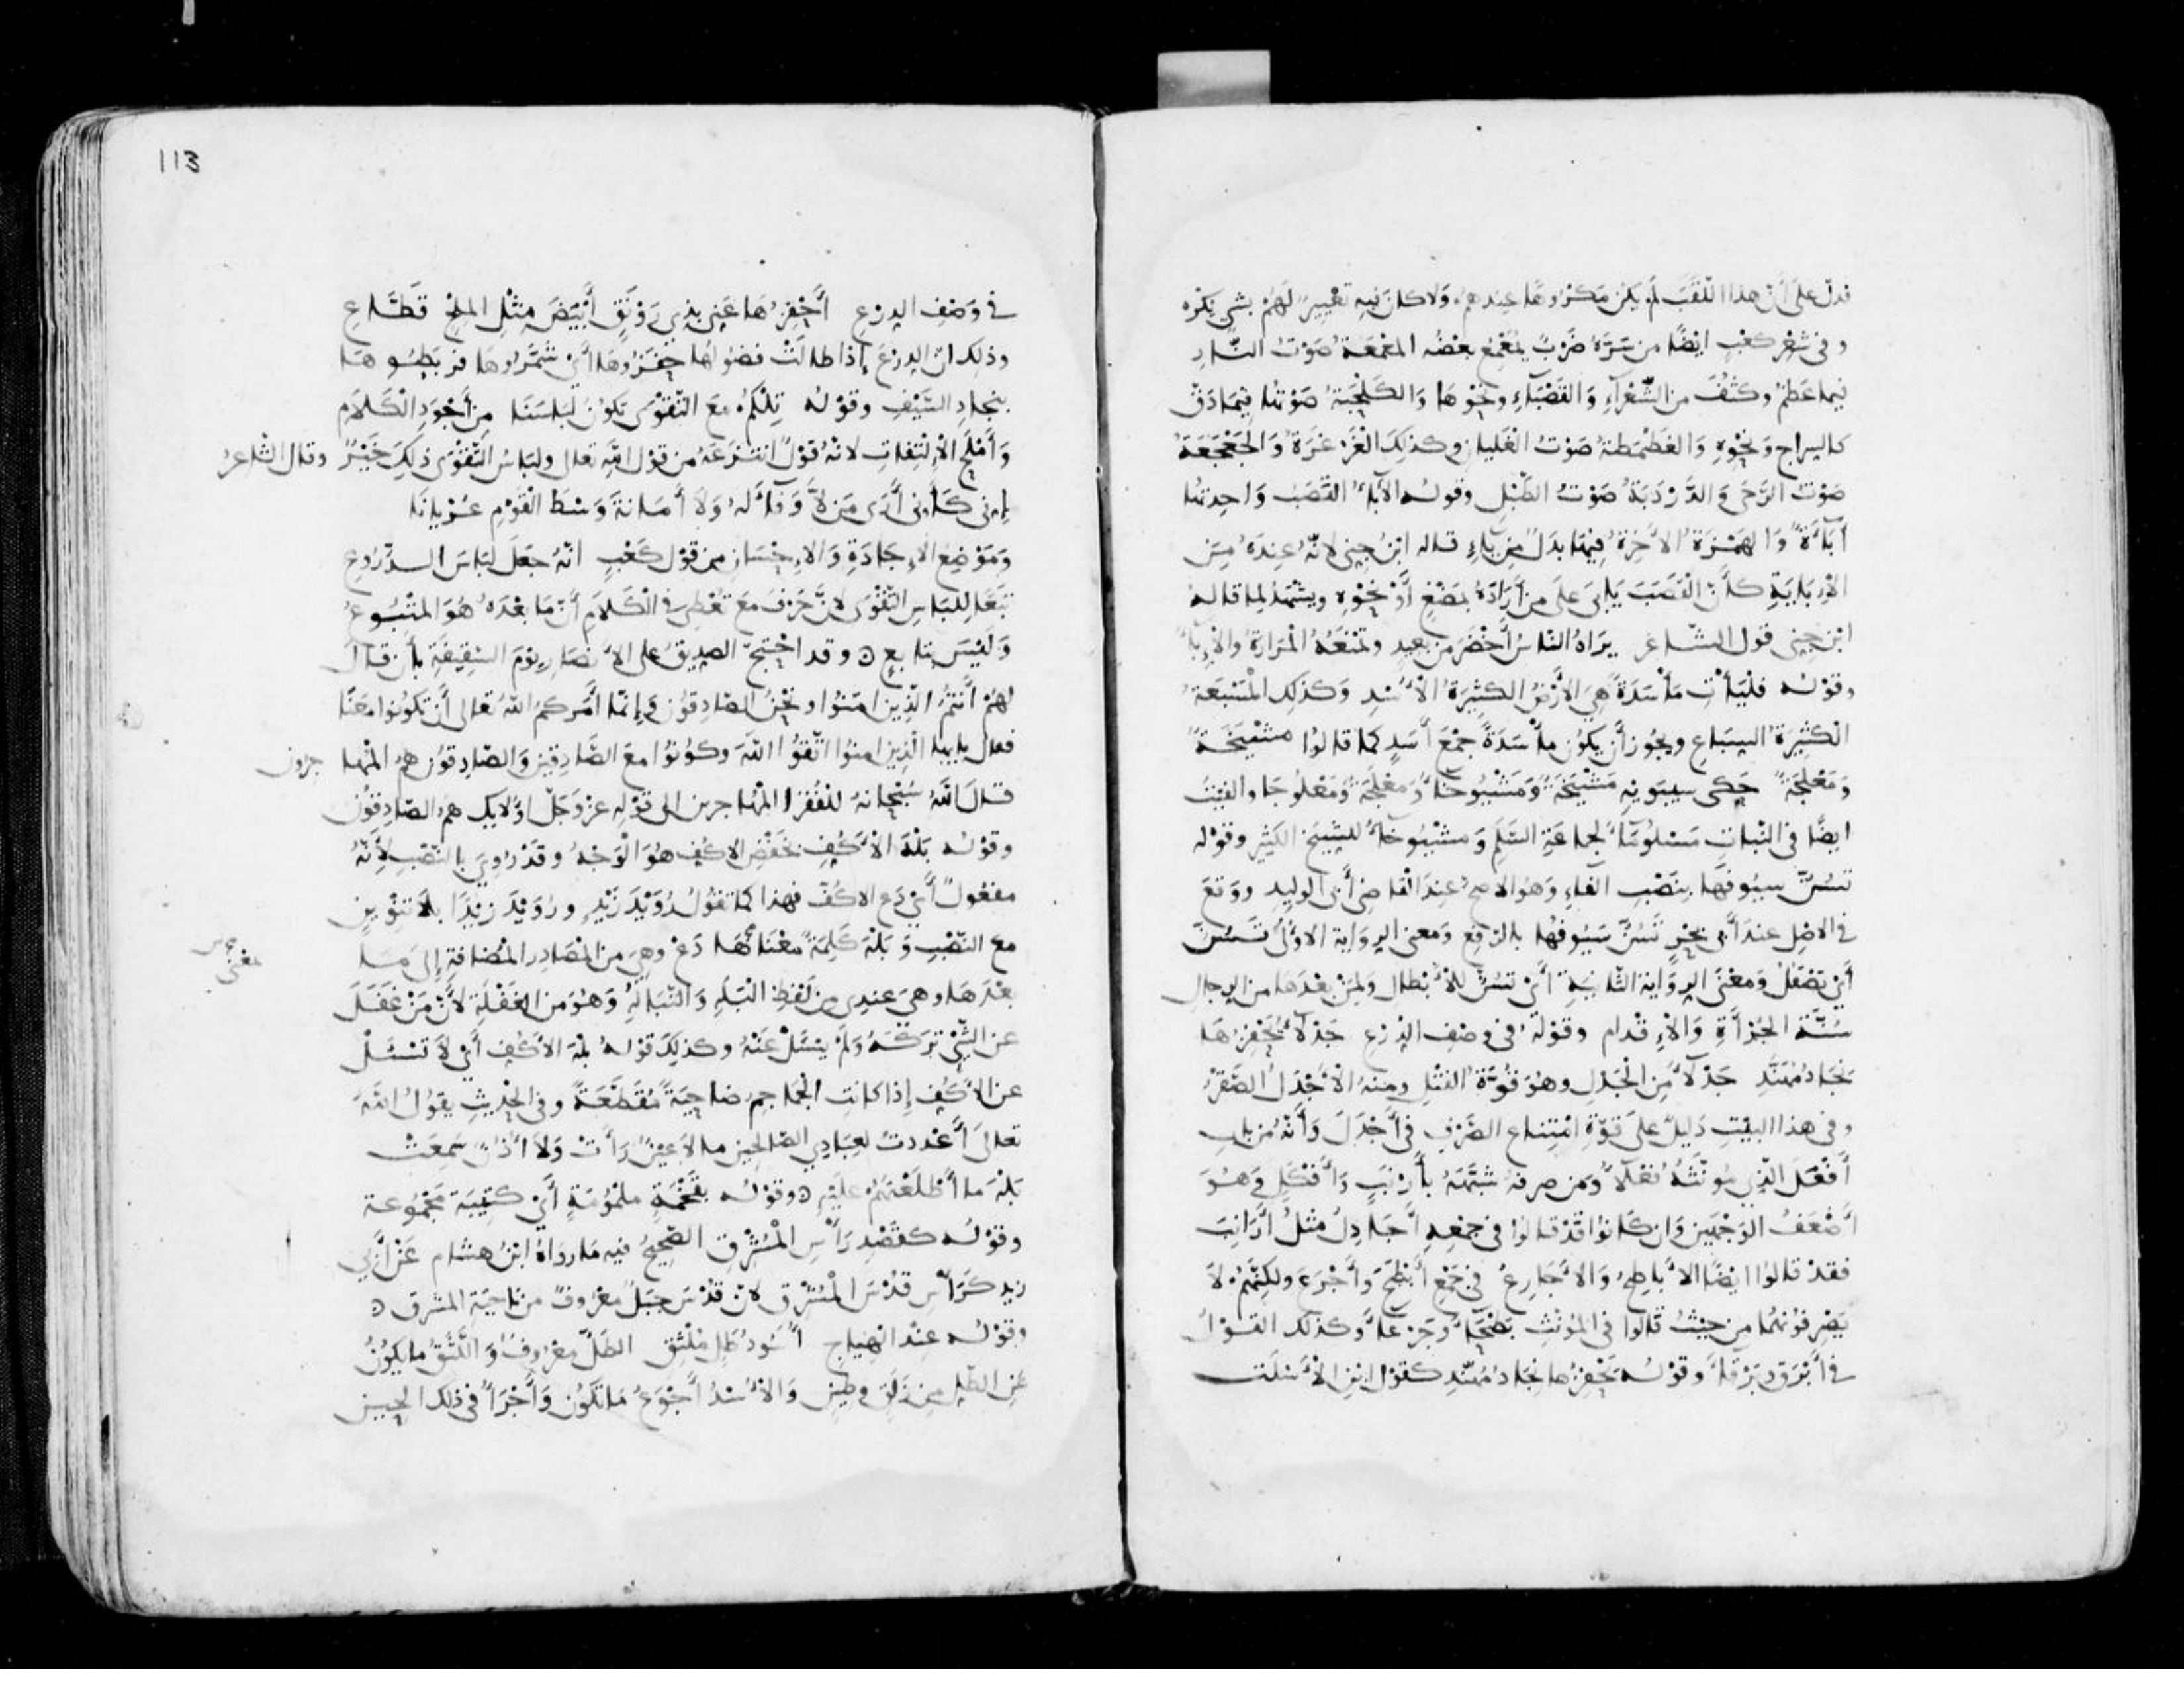 فدلّ على أنّ هذا اللّقَبَ لم يكن مَكْرُوهًا عِندهم وَلا كان فيه تَعْيِيرٌ لَهُمْ بشيء يُكْرَه
وفي شِعْر كعْبٍ ايضًا من سَرَّهُ ضَرْبٌ يُمَعْمِعُ بعضُه المَعْمَعَةُ صَوْتُ النَّارِ
فيما عَظُمَ وكَثُفَ من الشَّعْرَآءِ وَالقَصْبَآءِ ونحْوِهَا وَالكَلْحَبَةُ صَوْتُها فِيمَا دَقَّ
كالسِراج وَنحْوِهِ وَالغَطْمَطةُ صَوْتُ الغَلَيان وكذلكَ الغَرْغَرَةُ وَالجَعْجَعَةُ
صَوْتُ الرَّحَى وَالدَّرْدَبَةُ صَوْتُ الطَّبْلِ وقوله الأَبَآءُ القَصَبُ وَاحِدتُها
أَبَآءَةٌ وَالهَمْزَةُ الأَخِرَةُ فِيهَا بدَلٌ مِن يَآءٍ قاله ابْنُ جِنِي لانّهُ عِنْدَهُ مِنَ
الأَبَايَةِ كأَنّ القَصَبَ يَابَى عَلَى مَن أَرَادَهُ بمَضْغٍ أَوْ نحْوِهِ ويشْهَدُ لما قاله
ابْن جِنِي قول الشّاعر يَرَاهُ النّاسُ أَخْضَرَ من بعيد وتمْنَعُهُ المَرَارَةُ والأَبَآءُ
وقوْله فليَأْتِ مَأْسَدَةً هِيَ الأَرْضُ الكثِيرَةُ الأُسْدِ وَكذلك المَسْبَعَةُ
الكثِيرَةُ السِبَاع ويجُوز أن يكُون مأْسَدَةً جمْعَ أَسَدٍ كما قالوا مَشْيَخَةٌ
وَمَعْلَجَةٌ حَكى سِيبَويْهِ مَشْيَخَةً وَمَشْيُوخَآءَ وَمَعْلَجَةً وَمَعْلُوجَآءَ والفَيْتُ
ايضًا في النّبات مَسْلُومَآءَ لجماعَةِ السَّلَمِ وَمَشْيُوخَآءَ للشِيحِ الكثِيرِ وقوْله
تَسُنُّ سيُوفَهَا بنَصْبِ الفآءِ وَهُوَ الاصحّ عِنْدَ القاضِي أَبي الوليد ووَقعَ
في الاصْل عندَ أَبي بحْرٍ تَسُنُّ سُيُوفُها بالرّفعِ وَمعنى الرِوَاية الاولَى تَسُنُّ
أَيْ تصْقُلُ وَمَعْنَى الرِوَاية الثّانِيَةِ أَيْ تَسُنُّ للأَبْطال وَلمَنْ بعْدَهَا من الرِجال
سُنَّةَ الجُرْأَةِ وَالإِقْدام وقوْله في وصْف الدِرْع جَدْلآءُ يَحْفِزُهَا
نِجَادُ مُهَنَّدِ جَدْلآءُ من الجَدْل وهوَ قُوَّةُ الفَتْلِ ومنه الأَجْدَلُ الصَّقْرُ
وفي هذا البيْتِ دَلِيلٌ على قوّةِ امْتِناعِ الصَّرْفِ في أَجْدَلَ وَأَنّهُ من باب
أَفْعَلَ الّذِي مُونّثُهُ فَعْلآءُ وَمَن صرفهُ شبّهَهُ بأَرْنَبٍ وَأَفْكَلٍ وَهُوَ
أَضْعَفُ الوَجْهَيْن وَان كَانوا قدْ قالوا في جمْعِهِ أَجَادِلُ مثْلُ أَرَانِبَ
فقدْ قالوا ايضًا الأَبَاطِحُ وَالأَجَارِعُ في جمْعِ أَبْطَحَ وَأَجْرَعَ ولكِنّهُمْ لاَ
يَصْرِفُونَهُما من حيْثُ قالوا في المُونثِ بَطْحَآءُ وجَرْعَآءُ وكذلك القَوْلُ
في أَبْرَقَ وبَرْقَآءَ وقوْله يَحْفِزُها نِجَادُ مُهَنَّدِ كقوْل ابْنِ الأَسْلَت
113
في وَصْفِ الدِرْعِ أَحْفِزُهَا عَنِي بِذِي رَوْنَقٍ أَبْيَضَ مِثْلِ المِلْحِ قَطَّاعِ
وذلك انّ الدِرْعَ إذا طالَتْ فضُولُها حفَزُوهَا أَيْ شَمَّرُوهَا فرَبَطُوهَا
بنِجادِ السَّيْفِ وقوْله تِلْكُمْ مَعَ التَّقْوَى تكُونُ لِبَاسَنَا مِن أَجْوَدِ الكَلاَمِ
وَأَمْلَحِ الإِلْتِفَاتِ لانهُ قوْلٌ انتَزَعَهُ من قوْل الله تعالى ولِبَاسُ التّقْوَى ذلِكَ خَيْرٌ وقال الشّاعرُ
إِنِي كَأَنِي أَرَى مَن لاَ وَفَآءَ لَهُ وَلاَ أَمَانَةَ وَسْطَ القَوْمِ عُرْيانَا
وَمَوْضِعُ الإِجَادَةِ وَالإِحْسَانِ من قوْل كَعْبٍ انّهُ جَعَلَ لبَاسَ الدُّرُوعِ
تَبَعًا لِلبَاسِ التّقْوَى لأَنَّ حَرْفَ مَعَ تُعْطِي في الْكَلاَمِ أَنّ مَا بَعْدَهُ هُوَ المَتْبُوعُ
وَلَيْسَ بتابعٍ ٥ وقد احْتجّ الصِدِيقُ على الأَنصَارِ يوْمَ السَّقِيفَةِ بأَن قَالَ
لهُمْ أَنتُمُ الّذِينَ امَنُوا ونَحْنُ الصّادِقُون وَإنّما أَمَركمُ اللهُ تعَالى أَن تكُونُوا معَنَا
فقال يايها الّذِين امنوا اتّقُوا اللهَ وكُونُوا مَعَ الصَّادِقين وَالصَّادِقوُن هم المُها جرون
قالَ اللهُ سُبْحَانَهُ للفُقَرَا المُهاجرين الى قوْلِهِ عزّ وَجَلّ أُولايِكَ هُمُ الصّادِقُون
وقوْله بَلْهَ الأَكُفِ بخَفْضِ الاكُفِ هُوَ الْوَجْهُ وقدْ رُوِيَ بالنّصْب لأَنّهُ
مفعُولٌ أَيْ دَعِ الاكُفّ فهذا كما تقُولُ رُوَيْدَ زَيْدٍ ورُوَيْدَ زَيْدًا بلاَ تنْوِينٍ
مع النّصْبِ وَبَلْهَ كَلِمَةٌ مَعْنَاهَا دَعْ وهِيَ من المَصَادِر المُضَافةِ إلَى مَا
معنى
بعْدَهَا وهيَ عندِي مِن لَفْظِ البَلَهِ وَالتَّبَالُهِ وَهُوَ من الغَفْلَةِ لأَنّ مَنْ غَفَلَ
عن الشّيْءِ تَرَكَهُ وَلَمْ يسْئَلْ عَنْهُ وكذلِكَ قوْلهُ بَلْهَ الأَكُفِ أَيْ لاَ تسْئَلْ
عن الأَكُفِ إذا كانت الجَمَاجِمُ ضاحِيَةً مُقَطَّعَةً وفي الحدِيثِ يقوُلُ اللهُ
تعالَى أَعْددتُ لِعِبَادِي الصّالحِين ما لاَ عيْنٌ رَأَتْ وَلاَ أُذُنٌ سَمِعَتْ
بَلْهَ ما أَطْلَعْتُهُمْ عليْهِ ٥ وقوْله بفَخْمَةٍ ملْمُومَةٍ أَيْ كتِيبَة مَجْمُوعة
وقوْله كقَصْدِ رَأْسِ المُشْرِقِ الصّحِيحُ فيه مَا رَوَاهُ ابْنُ هشام عَنْ أَبِي
زيد كَرَأْسِ قُدْسَ المُشْرِق لانّ قُدْسَ جبَلٌ معْرُوفٌ من ناحيَةِ المشرق ٥
وقوْله عِنْدَ الهِيَاجِ أُسُودُ طَلٍّ مُلْثِقِ الطَلُّ معْرُوفٌ وَاللَّثَقُ ما يكُونُ
عن الطَّلِ مِن زَلَقٍ وطِينٍ وَالأُسْدُ أَجْوَعُ مَا تكُون وَأَجْرَأُ في ذلك الحِين